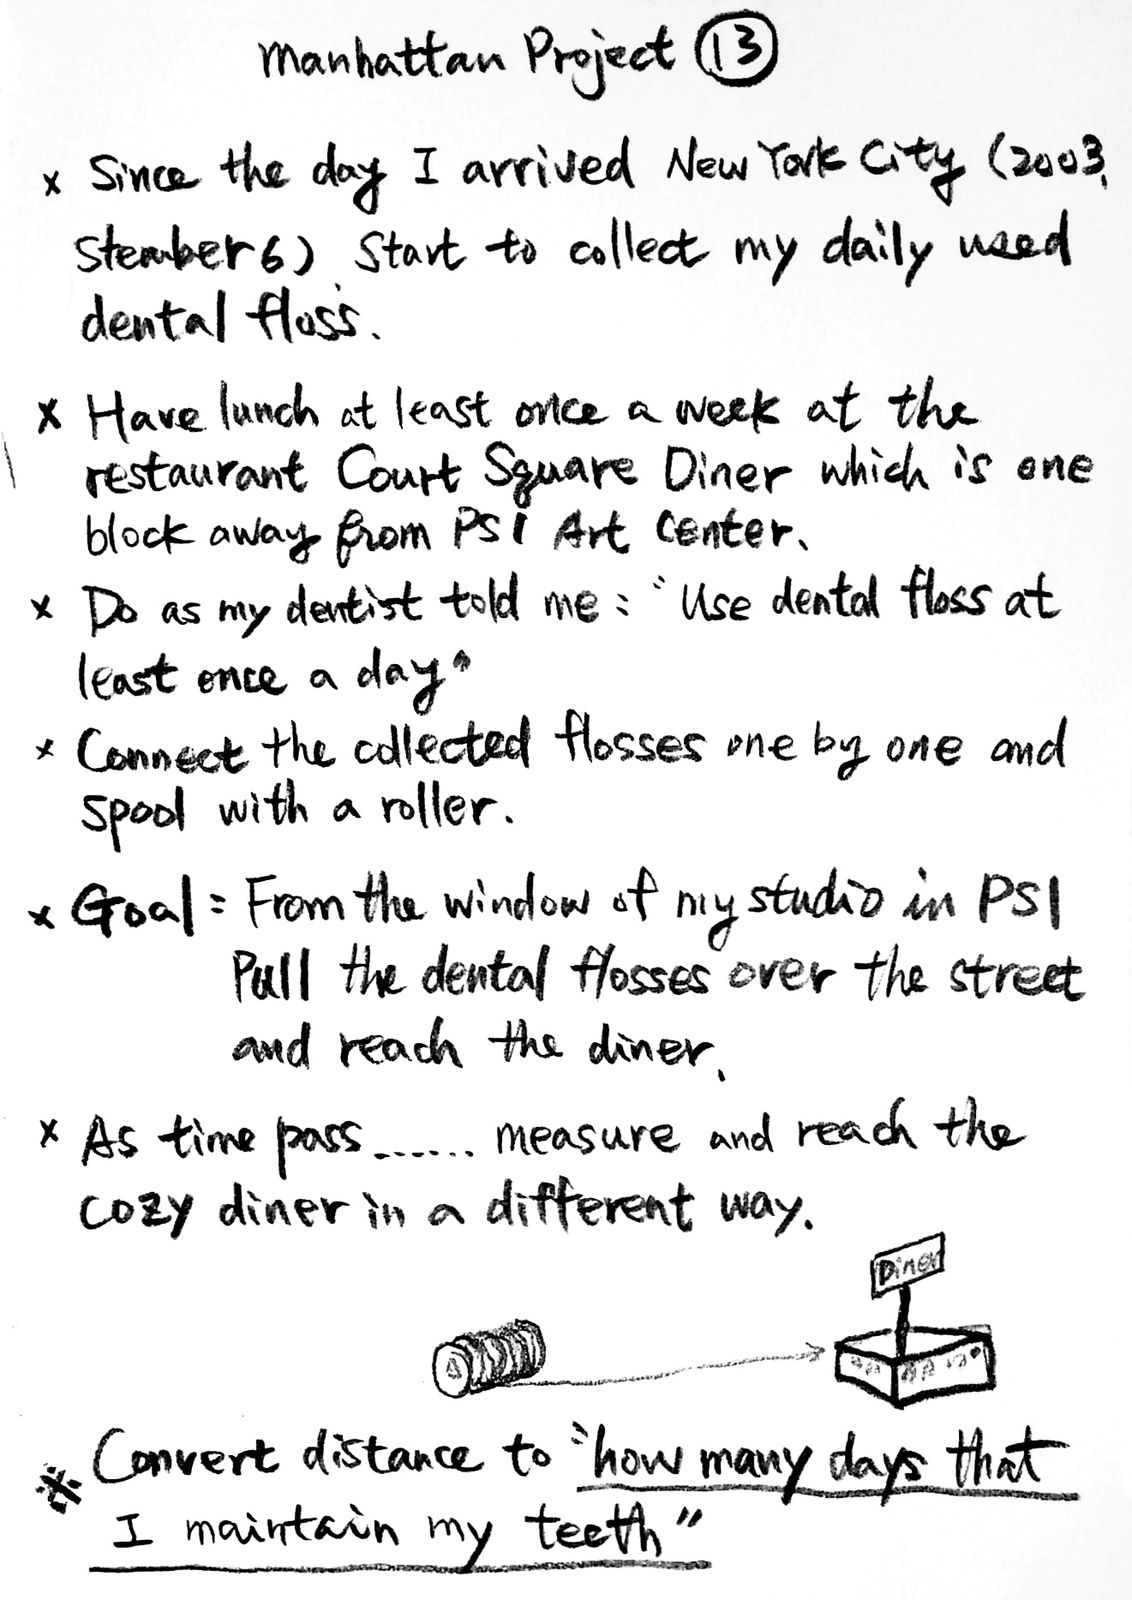 Manhattan Project ⑬
× Since the day I arrived New York City (2003,
Stember 6) Start to collect my daily used
dental floss.
× Have lunch at least once a week at the
restaurant Court Square Diner which is one
block away from PS1 Art Center.
× Do as my dentist told me : "Use dental floss at
least once a day"
× Connect the collected flosses one by one and
spool with a roller.
× Goal = From the window of my studio in PS1
Pull the dental flosses over the street
and reach the diner.
× As time pass ...... measure and reach the
cozy diner in a different way.
Diner
※ Convert distance to "how many days that
I maintain my teeth"